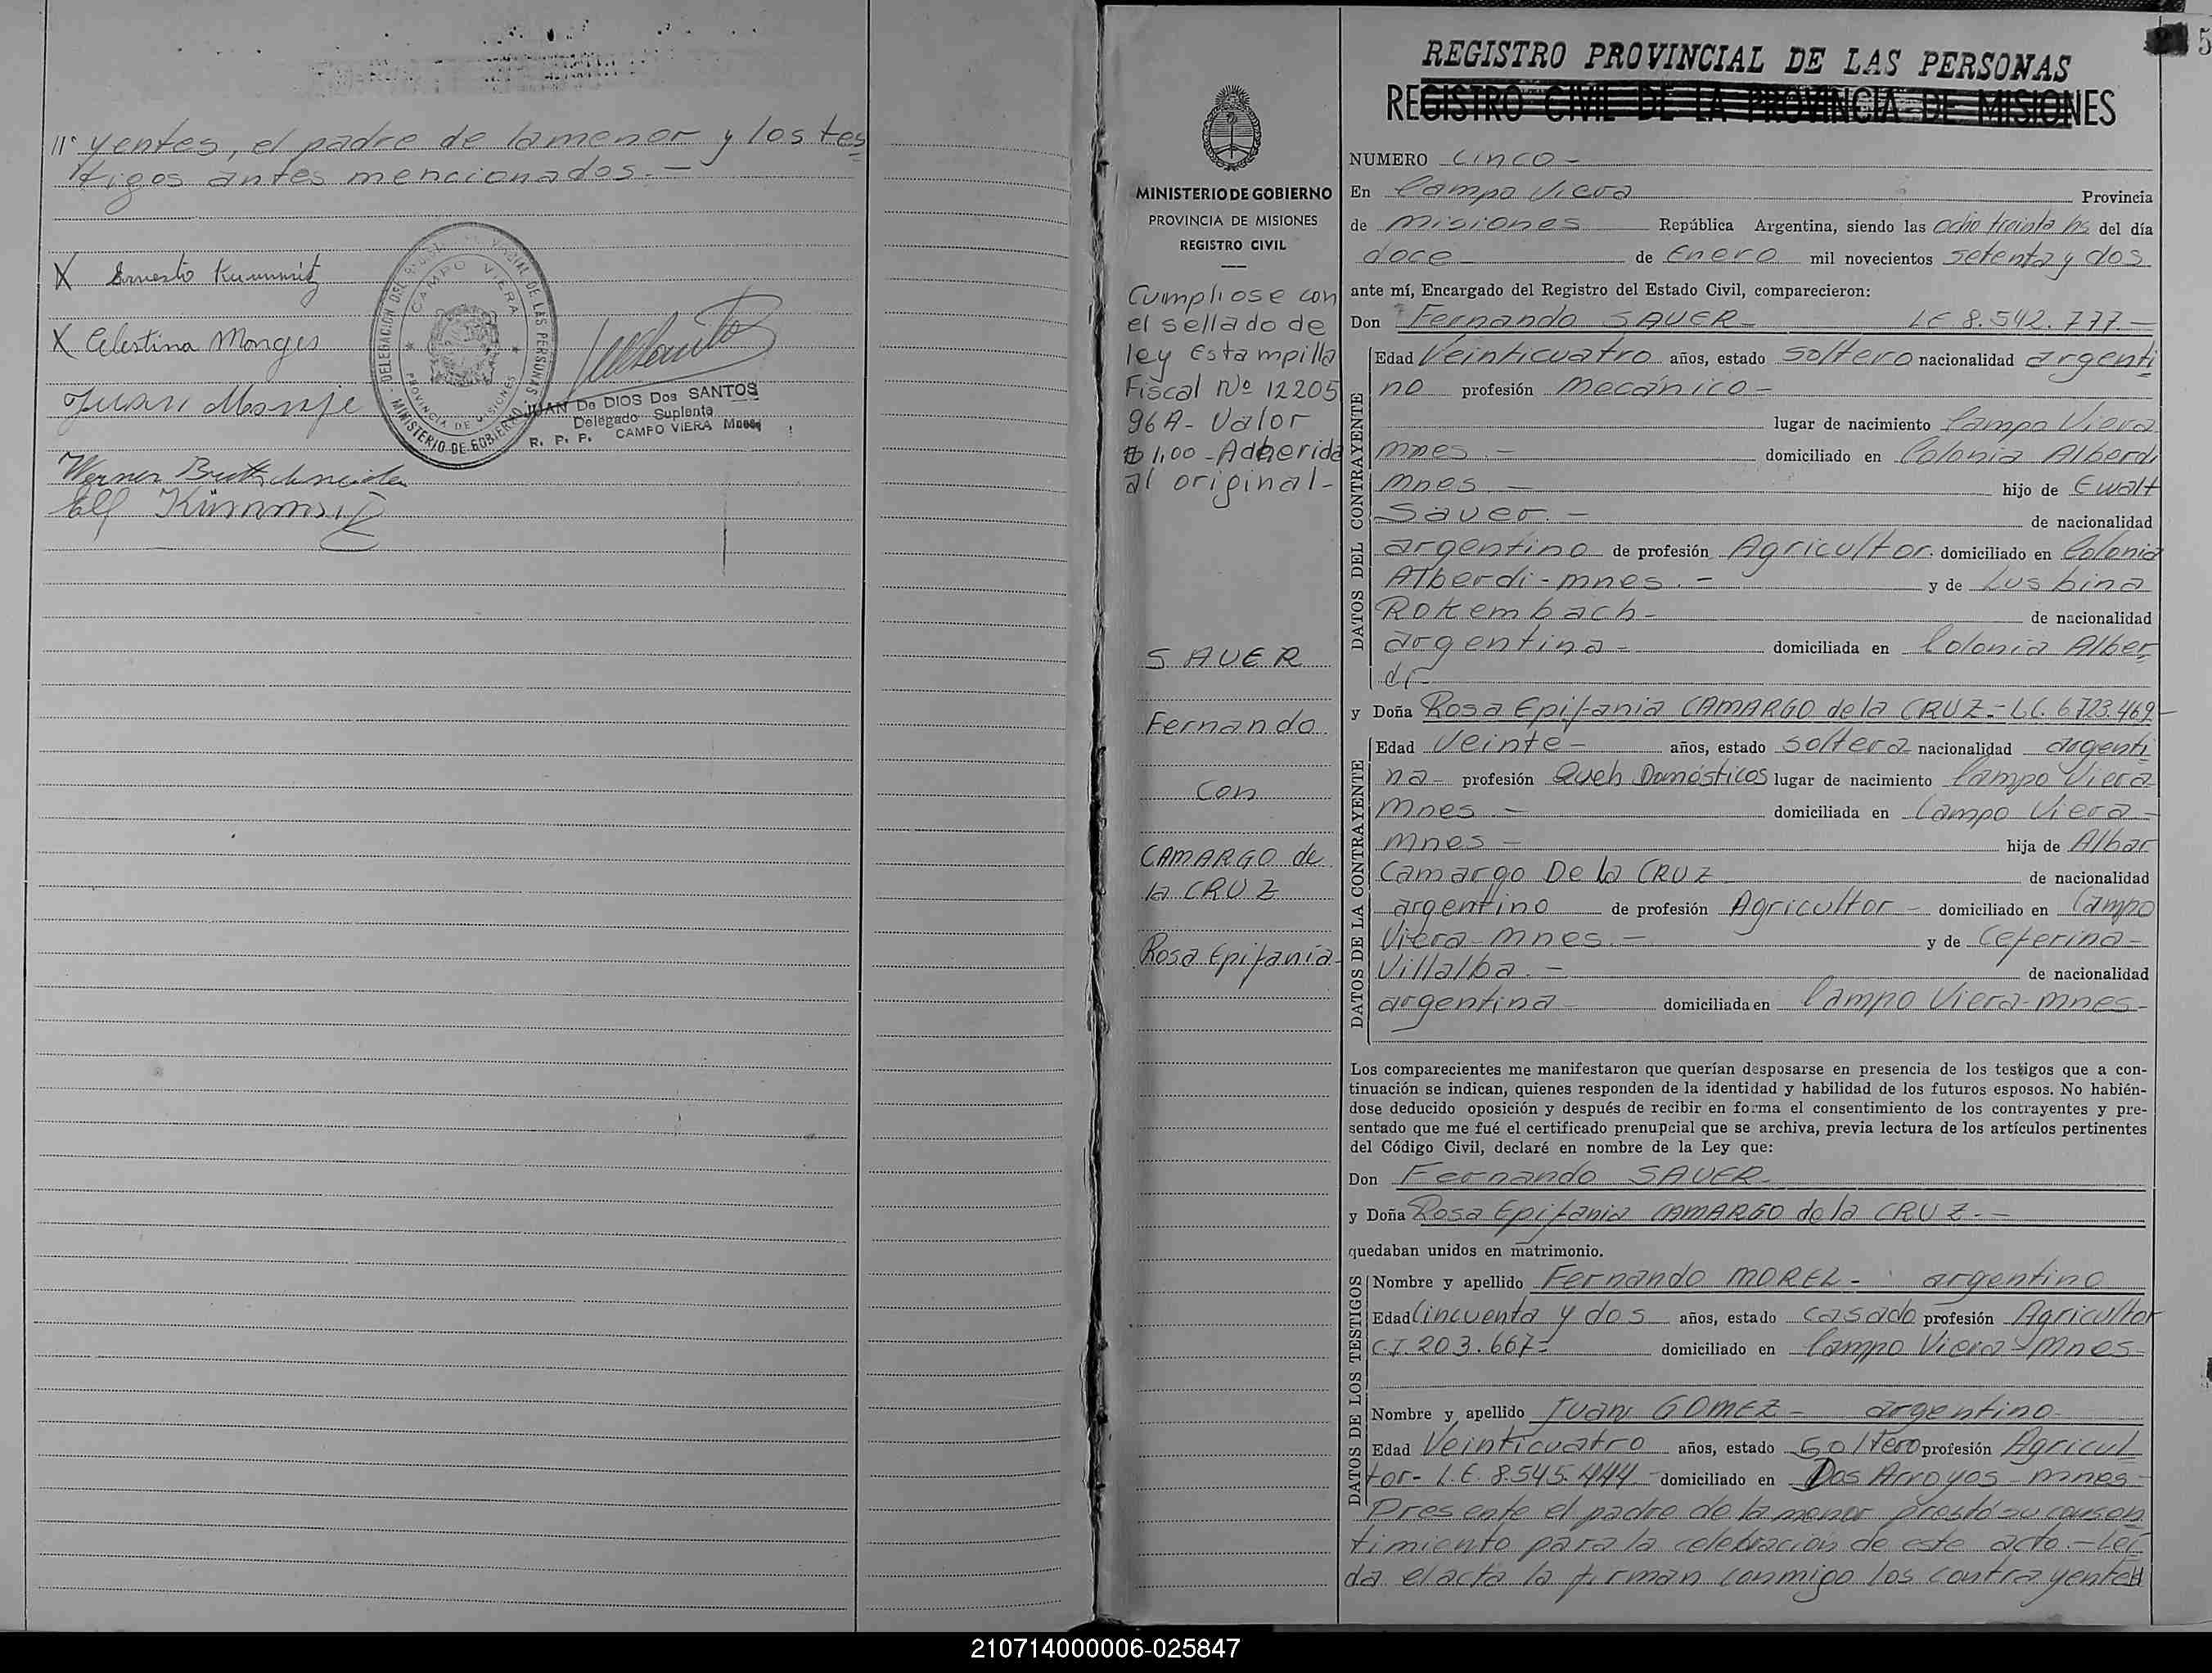 11° yentes, el padre de lamenor y los tes
tigos antes mencionados. -
X Ernesto Kummritz
X Celestina Monges
Juan Monje
Werner Bretschneider
Kümmritz
CAMPO VIERA
PROVINCIA DE MISIONES
DE LAS PERSONAS
MINISTERIO DE GOBIERNO
DELEGACIÓN DEL
JUAN De DIOS Dos SANTOS
Delegado Suplente
R. P. P. CAMPO VIERA Mnes
5
REGISTRO PROVINCIAL DE LAS PERSONAS
REGISTRO CIVIL DE LA PROVINCIA DE MISIONES
MINISTERIO DE GOBIERNO
PROVINCIA DE MISIONES
REGISTRO CIVIL
Cumpliose con
el sellado de
ley Estampilla
Fiscal Nº 12205
96A- Valor
$ 1,00 - Adherida
al original-
SAUER
Fernando
Con
CAMARGO de
la CRUZ
Rosa Epifania
NUMERO Cinco -
En Campo Viera Provincia
de Misiones República Argentina, siendo las ocho treinta hs del día
doce - de Enero mil novecientos setenta y dos
ante mí, Encargado del Registro del Estado Civil, comparecieron:
Don Fernando SAUER - LE 8.542.777. -
DATOS DEL CONTRAYENTE
Edad Veinticuatro años, estado soltero nacionalidad argenti
no profesión mecánico -
lugar de nacimiento Campo Viera
mnes. - domiciliado en Colonia Alberdi
mnes - hijo de Ewalt
Sauer. - de nacionalidad
argentino de profesión Agricultor. domiciliado en Colonia
Alberdi - mnes. - y de Lusbina
Rokembach - de nacionalidad
argentina - domiciliada en Colonia Alber
di -
y Doña Rosa Epifania CAMARGO de la CRUZ. - L.C. 6.723.469 -
DATOS DE LA CONTRAYENTE
Edad Veinte - años, estado soltera nacionalidad argenti
na - profesión Queh Domésticos lugar de nacimiento Campo Viera
Mnes - domiciliada en Campo Viera -
mnes - hija de Albar
Camargo De la CRUZ de nacionalidad
argentino de profesión Agricultor - domiciliado en Campo
Viera - mnes. - y de Ceferina -
Villalba. - de nacionalidad
argentina domiciliada en Campo Viera - mnes -
Los comparecientes me manifestaron que querían desposarse en presencia de los testigos que a con-
tinuación se indican, quienes responden de la identidad y habilidad de los futuros esposos. No habién-
dose deducido oposición y después de recibir en forma el consentimiento de los contrayentes y pre-
sentado que me fué el certificado prenupcial que se archiva, previa lectura de los artículos pertinentes
del Código Civil, declaré en nombre de la Ley que:
Don Fernando SAUER -
y Doña Rosa Epifania CAMARGO de la CRUZ. -
quedaban unidos en matrimonio.
DATOS DE LOS TESTIGOS
Nombre y apellido Fernando MOREL - argentino
Edad Cincuenta y dos años, estado casado profesión Agricultor
C.I. 203.667 - domiciliado en Campo Viera - mnes -
Nombre y apellido Juan GOMEZ - argentino
Edad Veinticuatro años, estado soltero profesión Agricul
tor - L.E. 8.545.444 - domiciliado en Dos Arroyos - mnes -
Presente el padre de la menor prestó su consen
timiento para la celebración de este acto. - Leí
da el acta la firman conmigo los contrayentes
210714000006-025847